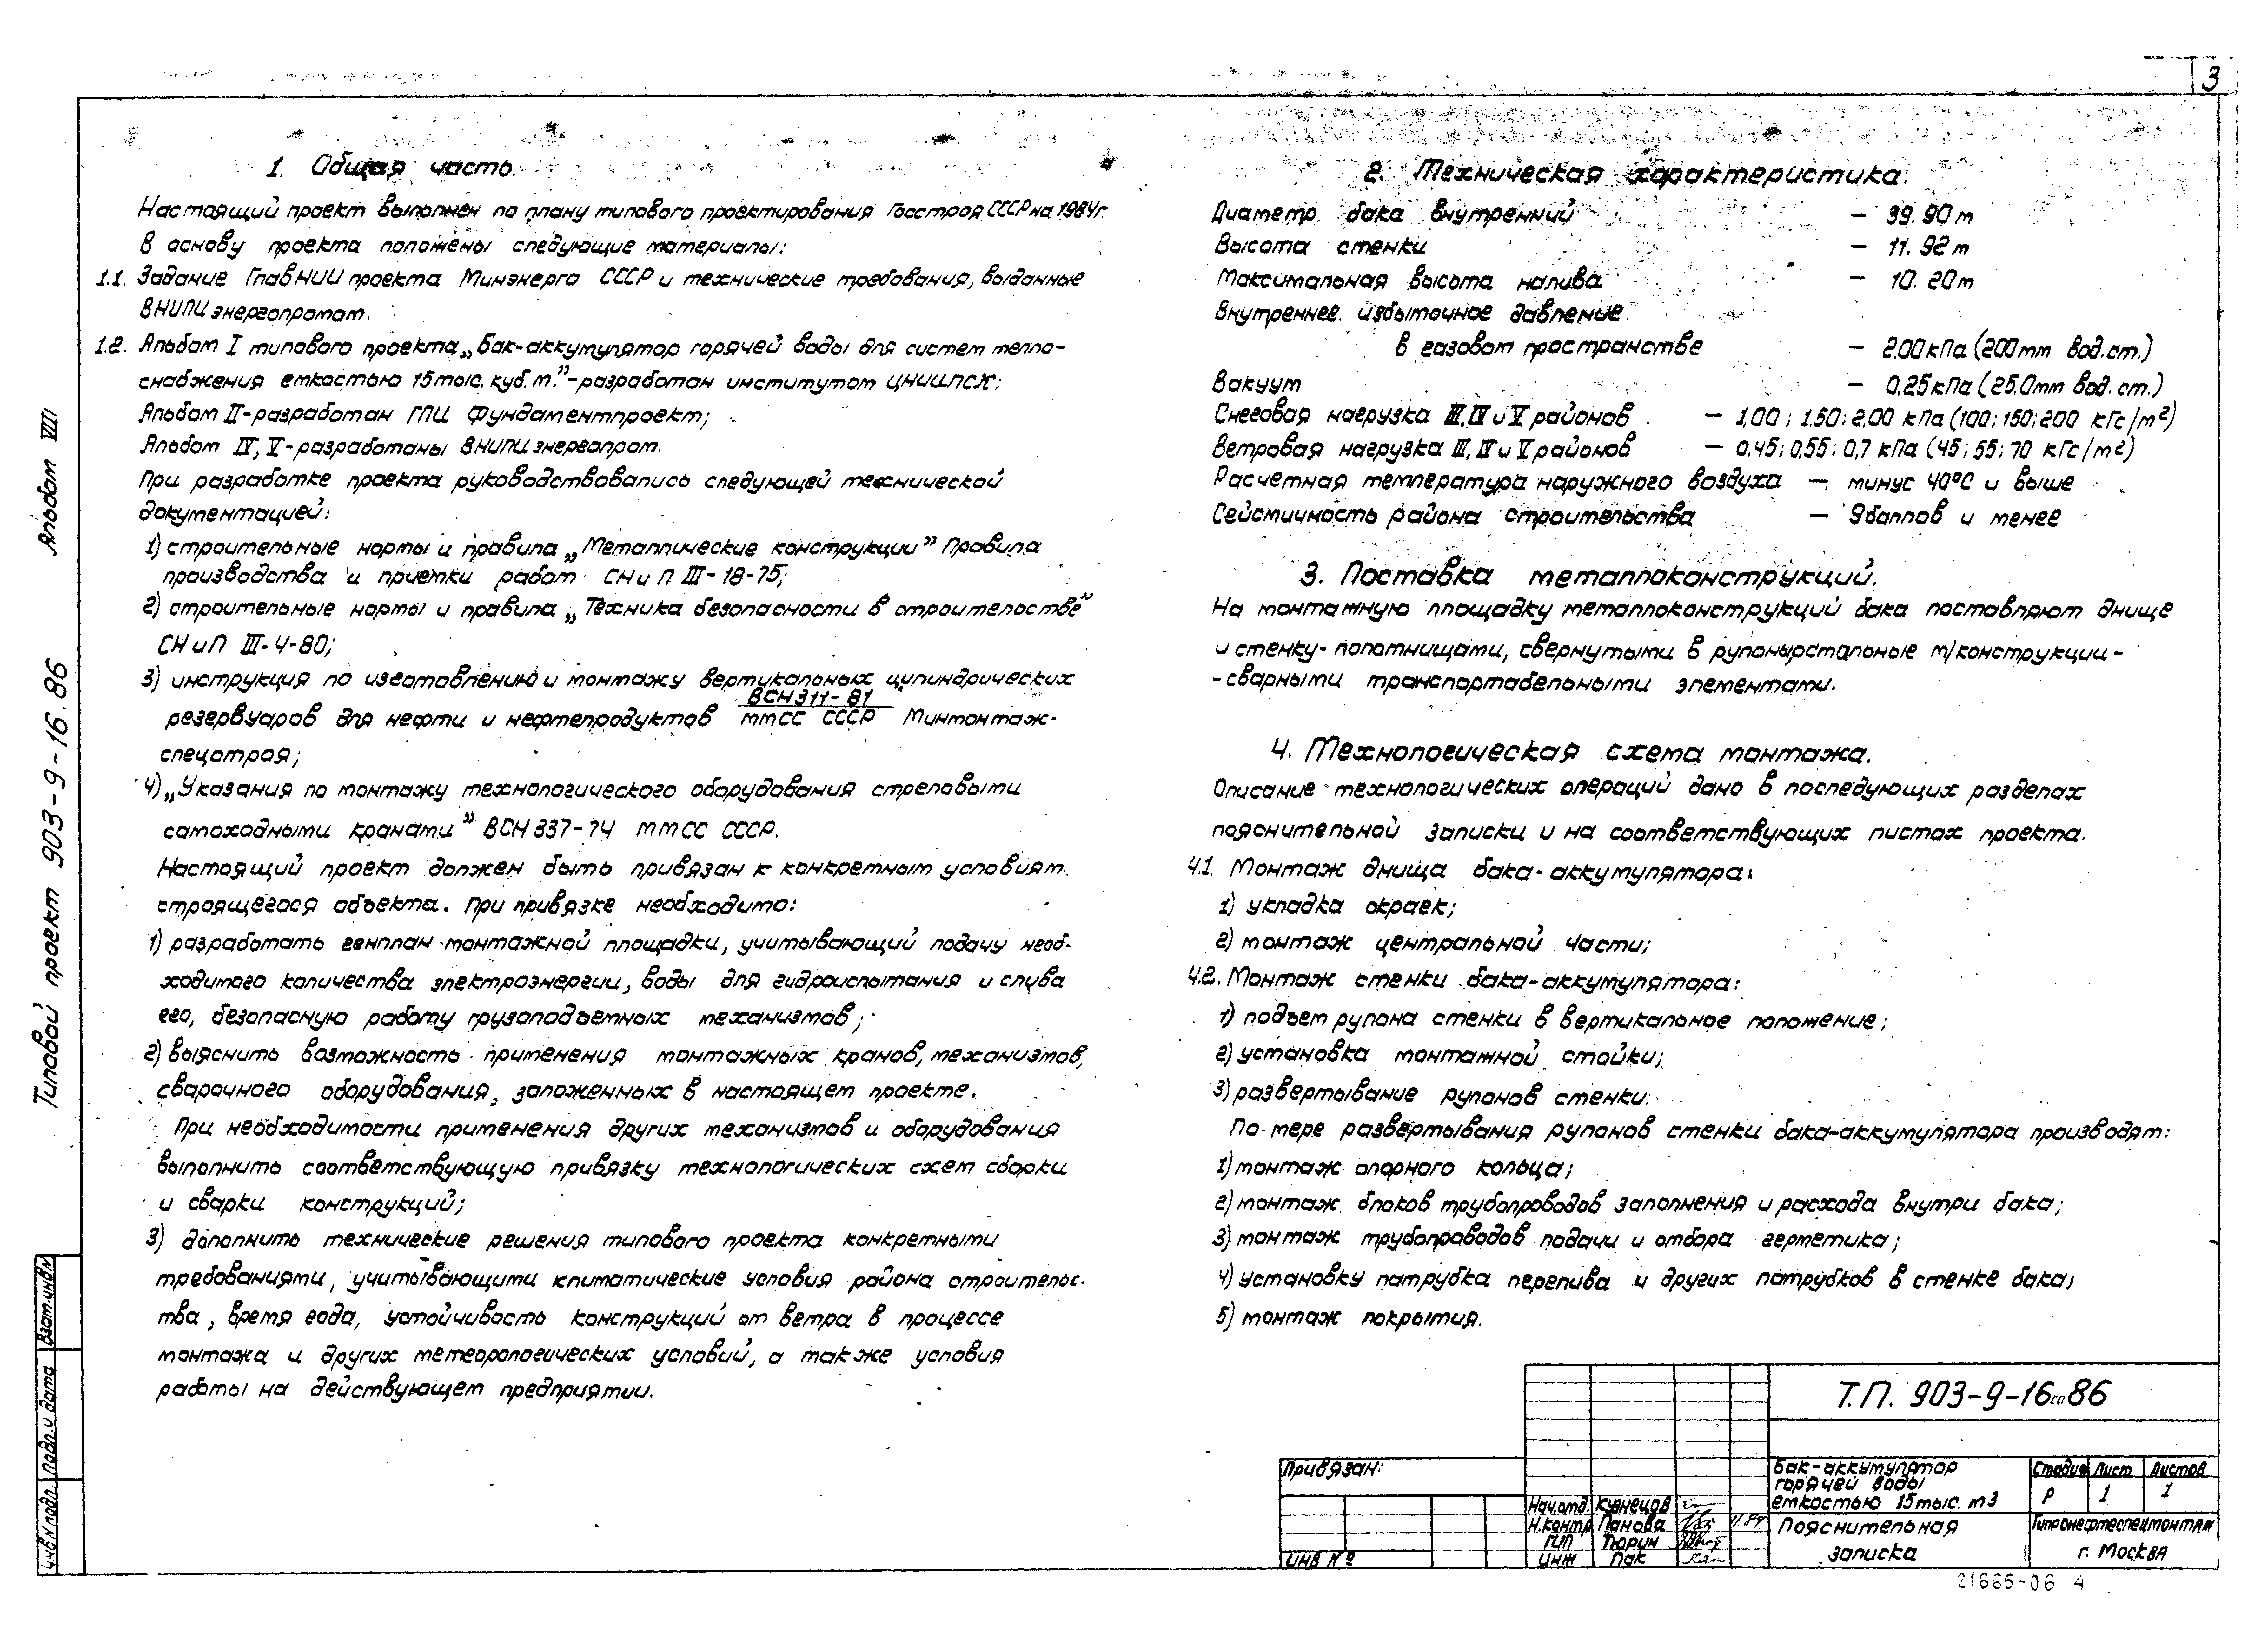 3
1. Общая часть.
Настоящий проект выполнен по плану типового проектирования Госстроя СССР на 1984г.
В основу проекта положены следующие материалы:
1.1. Задание ГлавНИИпроекта Минэнерго СССР и технические требования, выданные
ВНИПИэнергопромом.
1.2. Альбом I типового проекта „Бак-аккумулятор горячей воды для систем тепло-
снабжения емкостью 15 тыс. куб. м."-разработан институтом ЦНИИПСК;
Альбом II-разработан ГПИ Фундаментпроект;
Альбом IV, V-разработаны ВНИПИэнергопром.
При разработке проекта руководствовались следующей технической
документацией:
1) строительные нормы и правила „Металлические конструкции" Правила
производства и приемки работ СНиП III-18-75;
2) строительные нормы и правила „Техника безопасности в строительстве"
СНиП III-4-80;
3) инструкция по изготовлению и монтажу вертикальных цилиндрических
резервуаров для нефти и нефтепродуктов ВСН311-81/ММСС СССР Минмонтаж-
спецстроя;
4) „Указания по монтажу технологического оборудования стреловыми
самоходными кранами" ВСН 337-74 ММСС СССР.
Настоящий проект должен быть привязан к конкретным условиям
строящегося объекта. При привязке необходимо:
1) разработать генплан монтажной площадки, учитывающий подачу необ-
ходимого количества электроэнергии, воды для гидроиспытания и слива
его, безопасную работу грузоподъемных механизмов;
2) выяснить возможность применения монтажных кранов, механизмов,
сварочного оборудования, заложенных в настоящем проекте.
При необходимости применения других механизмов и оборудования
выполнить соответствующую привязку технологических схем сборки
и сварки конструкций;
3) дополнить технические решения типового проекта конкретными
требованиями, учитывающими климатические условия района строительс-
тва, время года, устойчивость конструкций от ветра в процессе
монтажа и других метеорологических условий, а также условия
работы на действующем предприятии.
2. Техническая характеристика.
Диаметр бака внутренний – 39.90 м
Высота стенки – 11.92 м
Максимальная высота налива – 10.20 м
Внутреннее избыточное давление
в газовом пространстве – 2.00 кПа (200 мм вод.ст.)
Вакуум – 0.25 кПа (25.0 мм вод.ст.)
Снеговая нагрузка III, IV и V районов – 1,00; 1.50; 2,00 кПа (100; 150; 200 кГс/м²)
Ветровая нагрузка III, IV и V районов – 0,45; 0,55; 0,7 кПа (45; 55; 70 кГс/м²)
Расчетная температура наружного воздуха – минус 40°С и выше
Сейсмичность района строительства – 9 баллов и менее
3. Поставка металлоконструкций.
На монтажную площадку металлоконструкций бака поставляют днище
и стенку-полотнищами, свернутыми в рулоны, остальные м/конструкции-
-сварными транспортабельными элементами.
4. Технологическая схема монтажа.
Описание технологических операций дано в последующих разделах
пояснительной записки и на соответствующих листах проекта.
4.1. Монтаж днища бака-аккумулятора:
1) укладка окраек;
2) монтаж центральной части;
4.2. Монтаж стенки бака-аккумулятора:
1) подъем рулона стенки в вертикальное положение;
2) установка монтажной стойки;
3) развертывание рулонов стенки.
По мере развертывания рулонов стенки бака-аккумулятора производят:
1) монтаж опорного кольца;
2) монтаж блоков трубопроводов заполнения и расхода внутри бака;
3) монтаж трубопроводов подачи и отбора герметика;
4) установку патрубка перелива и других патрубков в стенке бака;
5) монтаж покрытия.
Типовой проект 903-9-16.86 Альбом VIII
Взам.инв.№
Подп.и дата
Инв.№подл.
Привязан:
Инв №
Нач.отд. Кузнецов
Н.контр Панова 11.84
ГИП Тюрин
Инж Пак
Т.П. 903-9-16сп86
Бак-аккумулятор
горячей воды
емкостью 15 тыс. м3
Стадия Лист Листов
Р 1 1
Пояснительная
записка
Гипронефтеспецмонтаж
г. Москва
21665-06 4